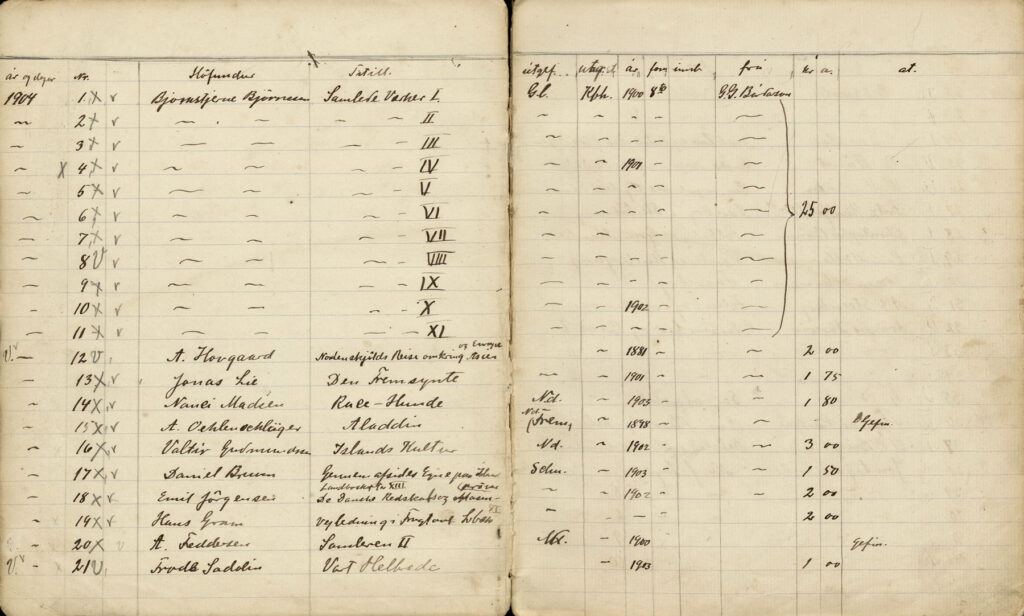 ár og dagur Nr. Höfundur Titill. útgef. útg.st. ár. form innb. frá kr a. at.
1904 1. x v Bjørnstjerne Bjørnson Samlede Værker I. Gl. Kbh. 1900 8vo G.G. Bárðarson
~ 2 x v — — — – II ~ ~ ~ – —
~ 3 x v — — — – III ~ ~ ~ – —
~ X 4 x v — — — – IV ~ ~ 1901 – —
~ 5 x v — — — – V ~ ~ ~ – —
~ 6 x v — — — – VI ~ ~ ~ – — 25 00
~ 7 x v — — — – VII ~ ~ ~ – —
~ 8 V v — — — – VIII ~ ~ ~ – —
~ 9 x v — — — – IX — ~ ~ – —
~ 10 x v — — — – X — ~ 1902 – —
~ 11 x v — — — – XI — ~ ~ – —
V. v – 12 V, A. Hovgaard Nordenskjölds Reise omkring Asien og Europa ~ 1881 – ~ 2 00
– 13 x, v Jonas Lie Den Fremsynte ~ ~ 1901 – ~ 1 75
– 14 x, v Nanci Madsen Race-Hunde Nd. ~ 1903 – ~ 1 80
– 15 x, v A. Oehlenschläger Aladdin Nd. (Frem) ~ 1898 – – Gefin.
– 16 x, v Valtir Guðmundsson Islands Kultur Nd. ~ 1902 – ~ 3 00
– 17 x, v Daniel Bruun Gennem afsides Egne paa Island Schu. ~ 1903 – ~ 1 50
– 18 x v Emil Jörgensen De Danske Redskabs og ~ ~ 1902 – ~ 2 00
– 19 x v Hans Gram Vejledning i Frugtavl ~ – 2 00
– 20 x v A. Feddersen Samleren II Nd. ~ 1900 gefin.
V. v – 21 V, Frode Sadolin Vort Helbede ~ 1903 – 1 00